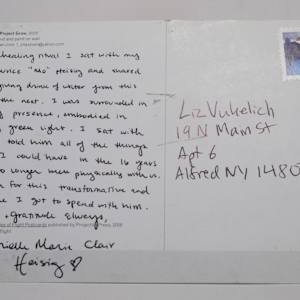 Project Grow, 2009
and paint on wall
healing ritual I sat with my
"Mo" Heisig and shared
giving drink of water from this
the nest. I was surrounded in
presence, embodied in
green light. I sat with
told him all of the things
I could have in the 16 years
no longer been physically with us.
for this transformative and
I got to spend with him.
+ Gratitude Always,
Marie Clair
Heisig
of Flight Postcards published by Projective Press, 2009
Liz Vukelich
19 N Main St
Apt 6
Alfred NY 14802